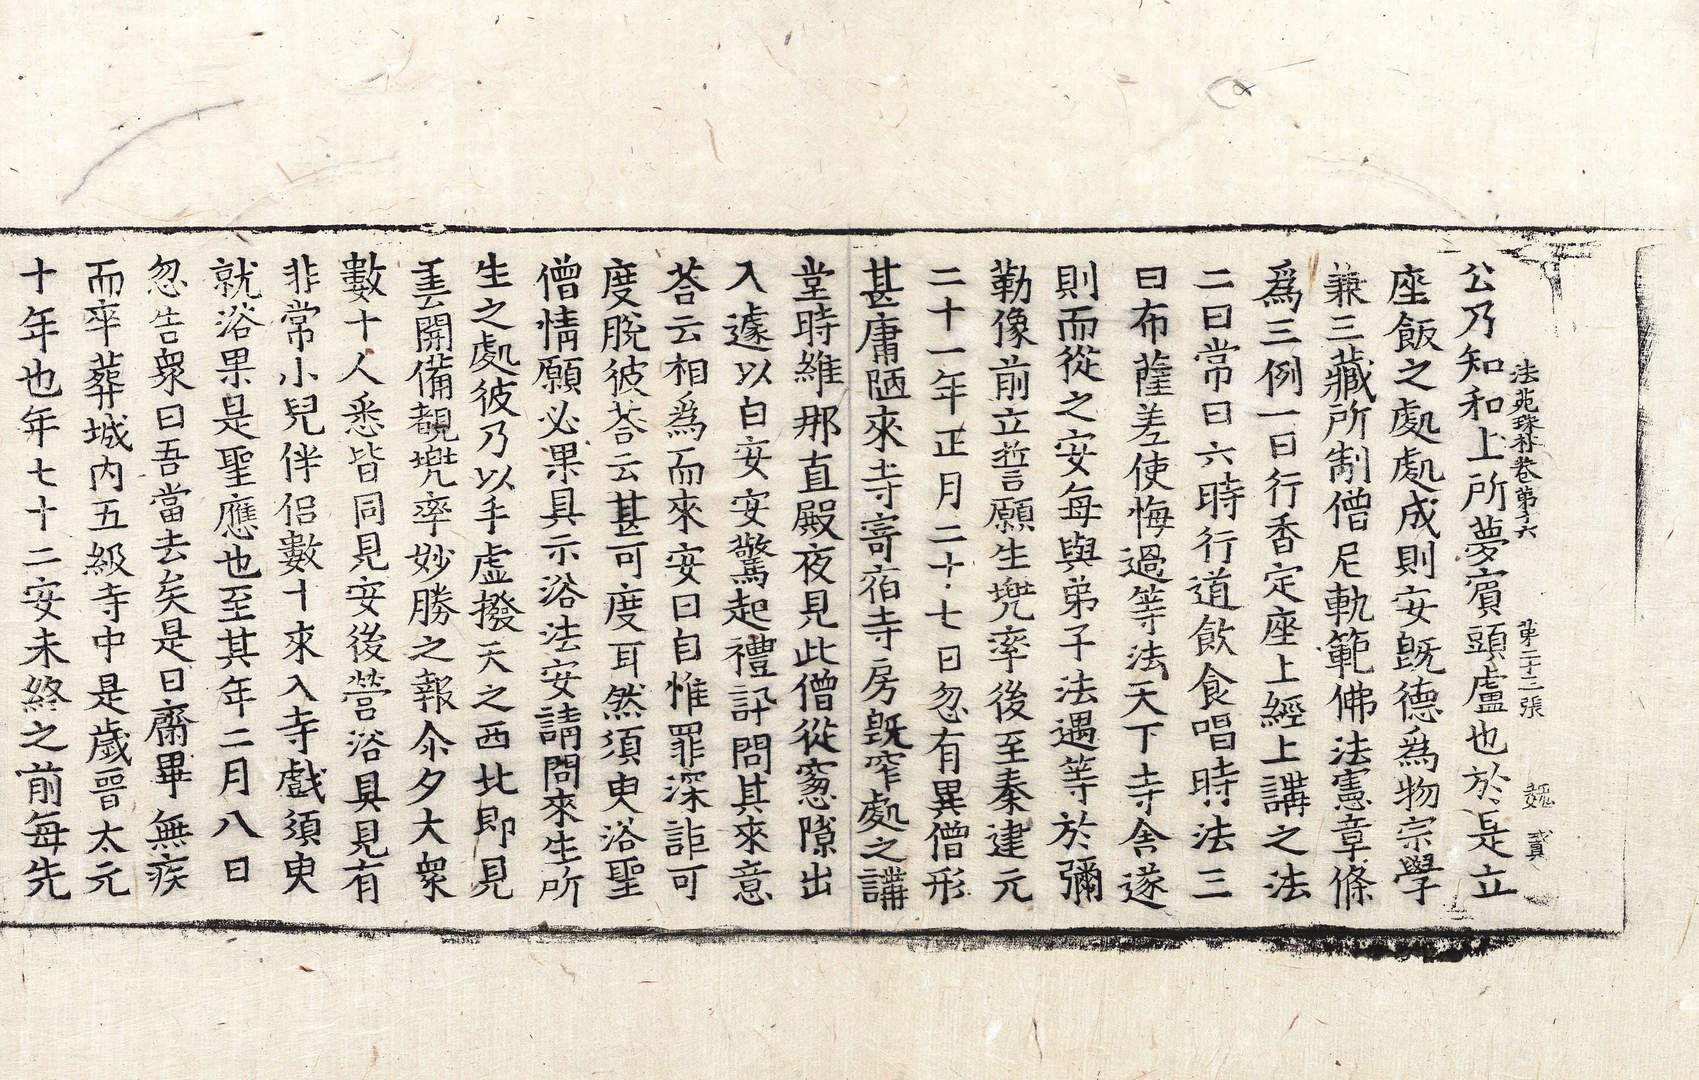 法苑珠林卷第十六　第二十二張　魏
公乃知和上所夢賓頭盧也於是立
座飯之處處成則安旣德爲物宗學
兼三藏所制僧尼軌範佛法憲章條
爲三例一曰行香定座上經上講之法
二曰常日六時行道飮食唱時法三
曰布薩差使悔過等法天下寺舍遂
則而從之安每與弟子法遇等於彌
勒像前立誓願生兜率後至秦建元
二十一年正月二十七日忽有異僧形
甚庸陋來寺寄宿寺房旣窄處之講
堂時維那直殿夜見此僧從窻隙出
入遽以白安安驚起禮訊問其來意
荅云相爲而來安曰自惟罪深詎可
度脫彼荅云甚可度耳然須臾浴聖
僧情願必果具示浴法安請問來生所
生之處彼乃以手虛撥天之西北即見
雲開備覩兜率妙勝之報尒夕大衆
數十人悉皆同見安後營浴具見有
非常小兒伴侶數十來入寺戲須臾
就浴果是聖應也至其年二月八日
忽告衆曰吾當去矣是日齋畢無疾
而卒葬城内五級寺中是歲晉太元
十年也年七十二安未終之前每先